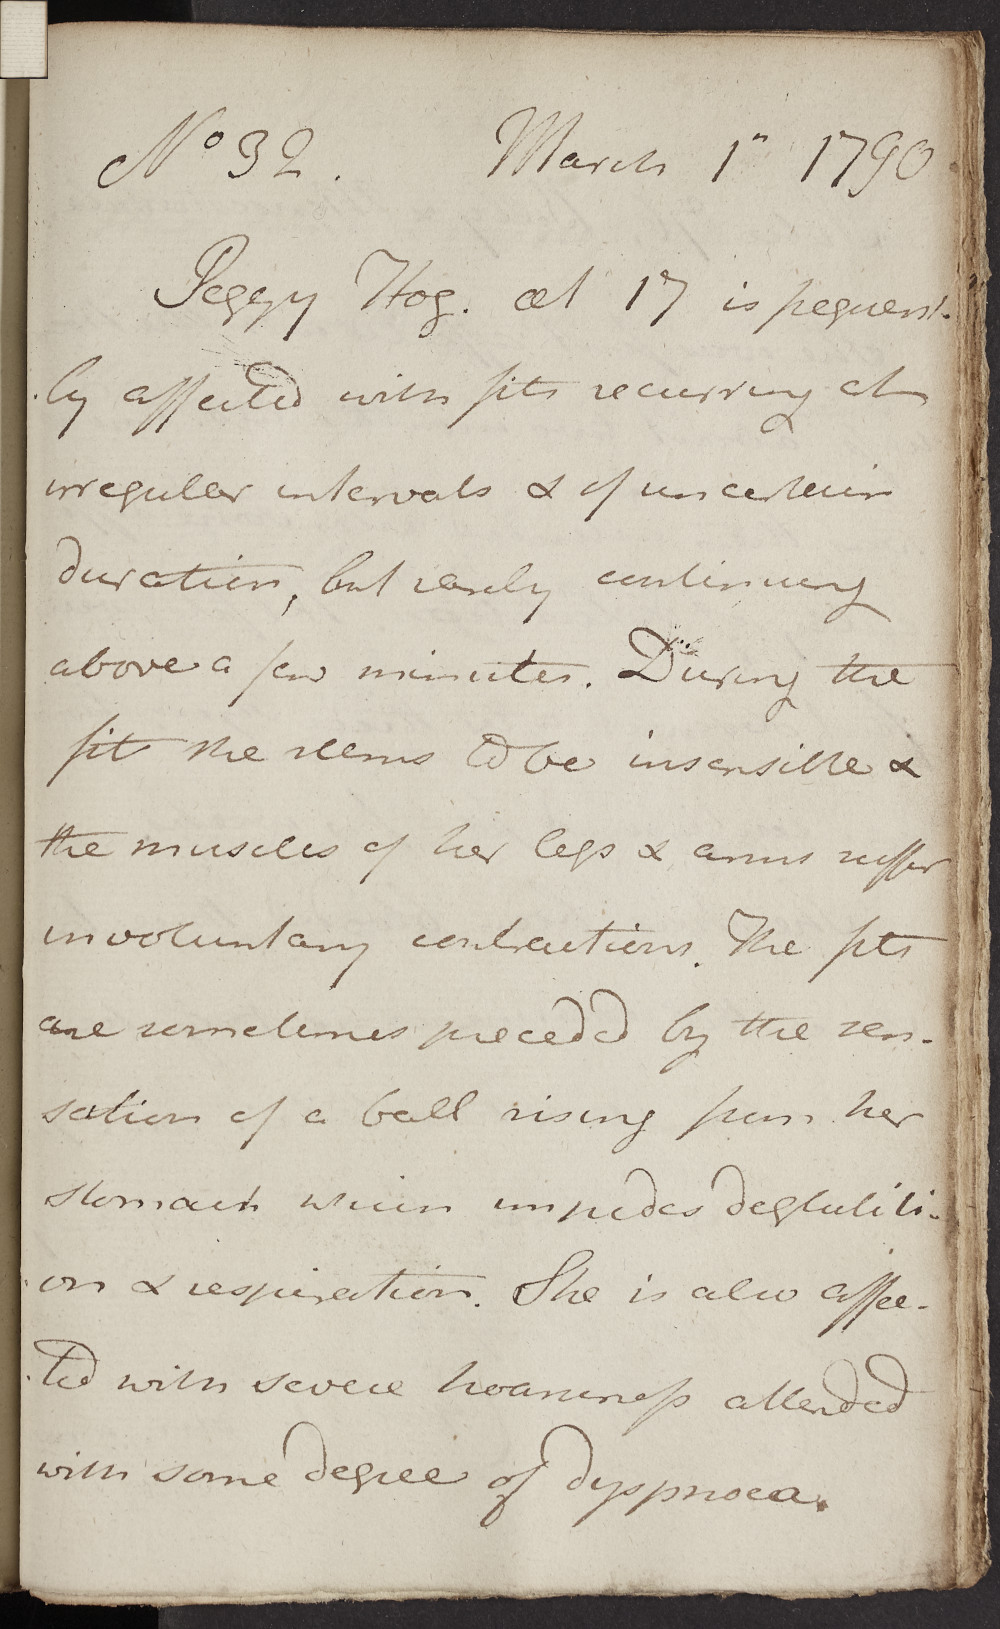 No 32. March 1st 1790
Peggy Hog. æt 17 is frequent-
ly affected with fits recurring at
irregular intervals & of uncertain
duration, but rarely continuing
above a few minutes. During the
fit she seems to be insensible &
the muscles of her legs & arms suffer
involuntary contractions. The fits
are sometimes preceded by the sen-
sation of a ball rising from her
stomach which impedes degluti-
on & respiration. She is also affec-
ted with severe hoarseness attended
with some degree of dyspnoea.